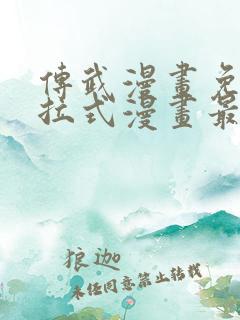 傳武漫畫免
拉式漫畫最
狼迦
未任同意禁止转载